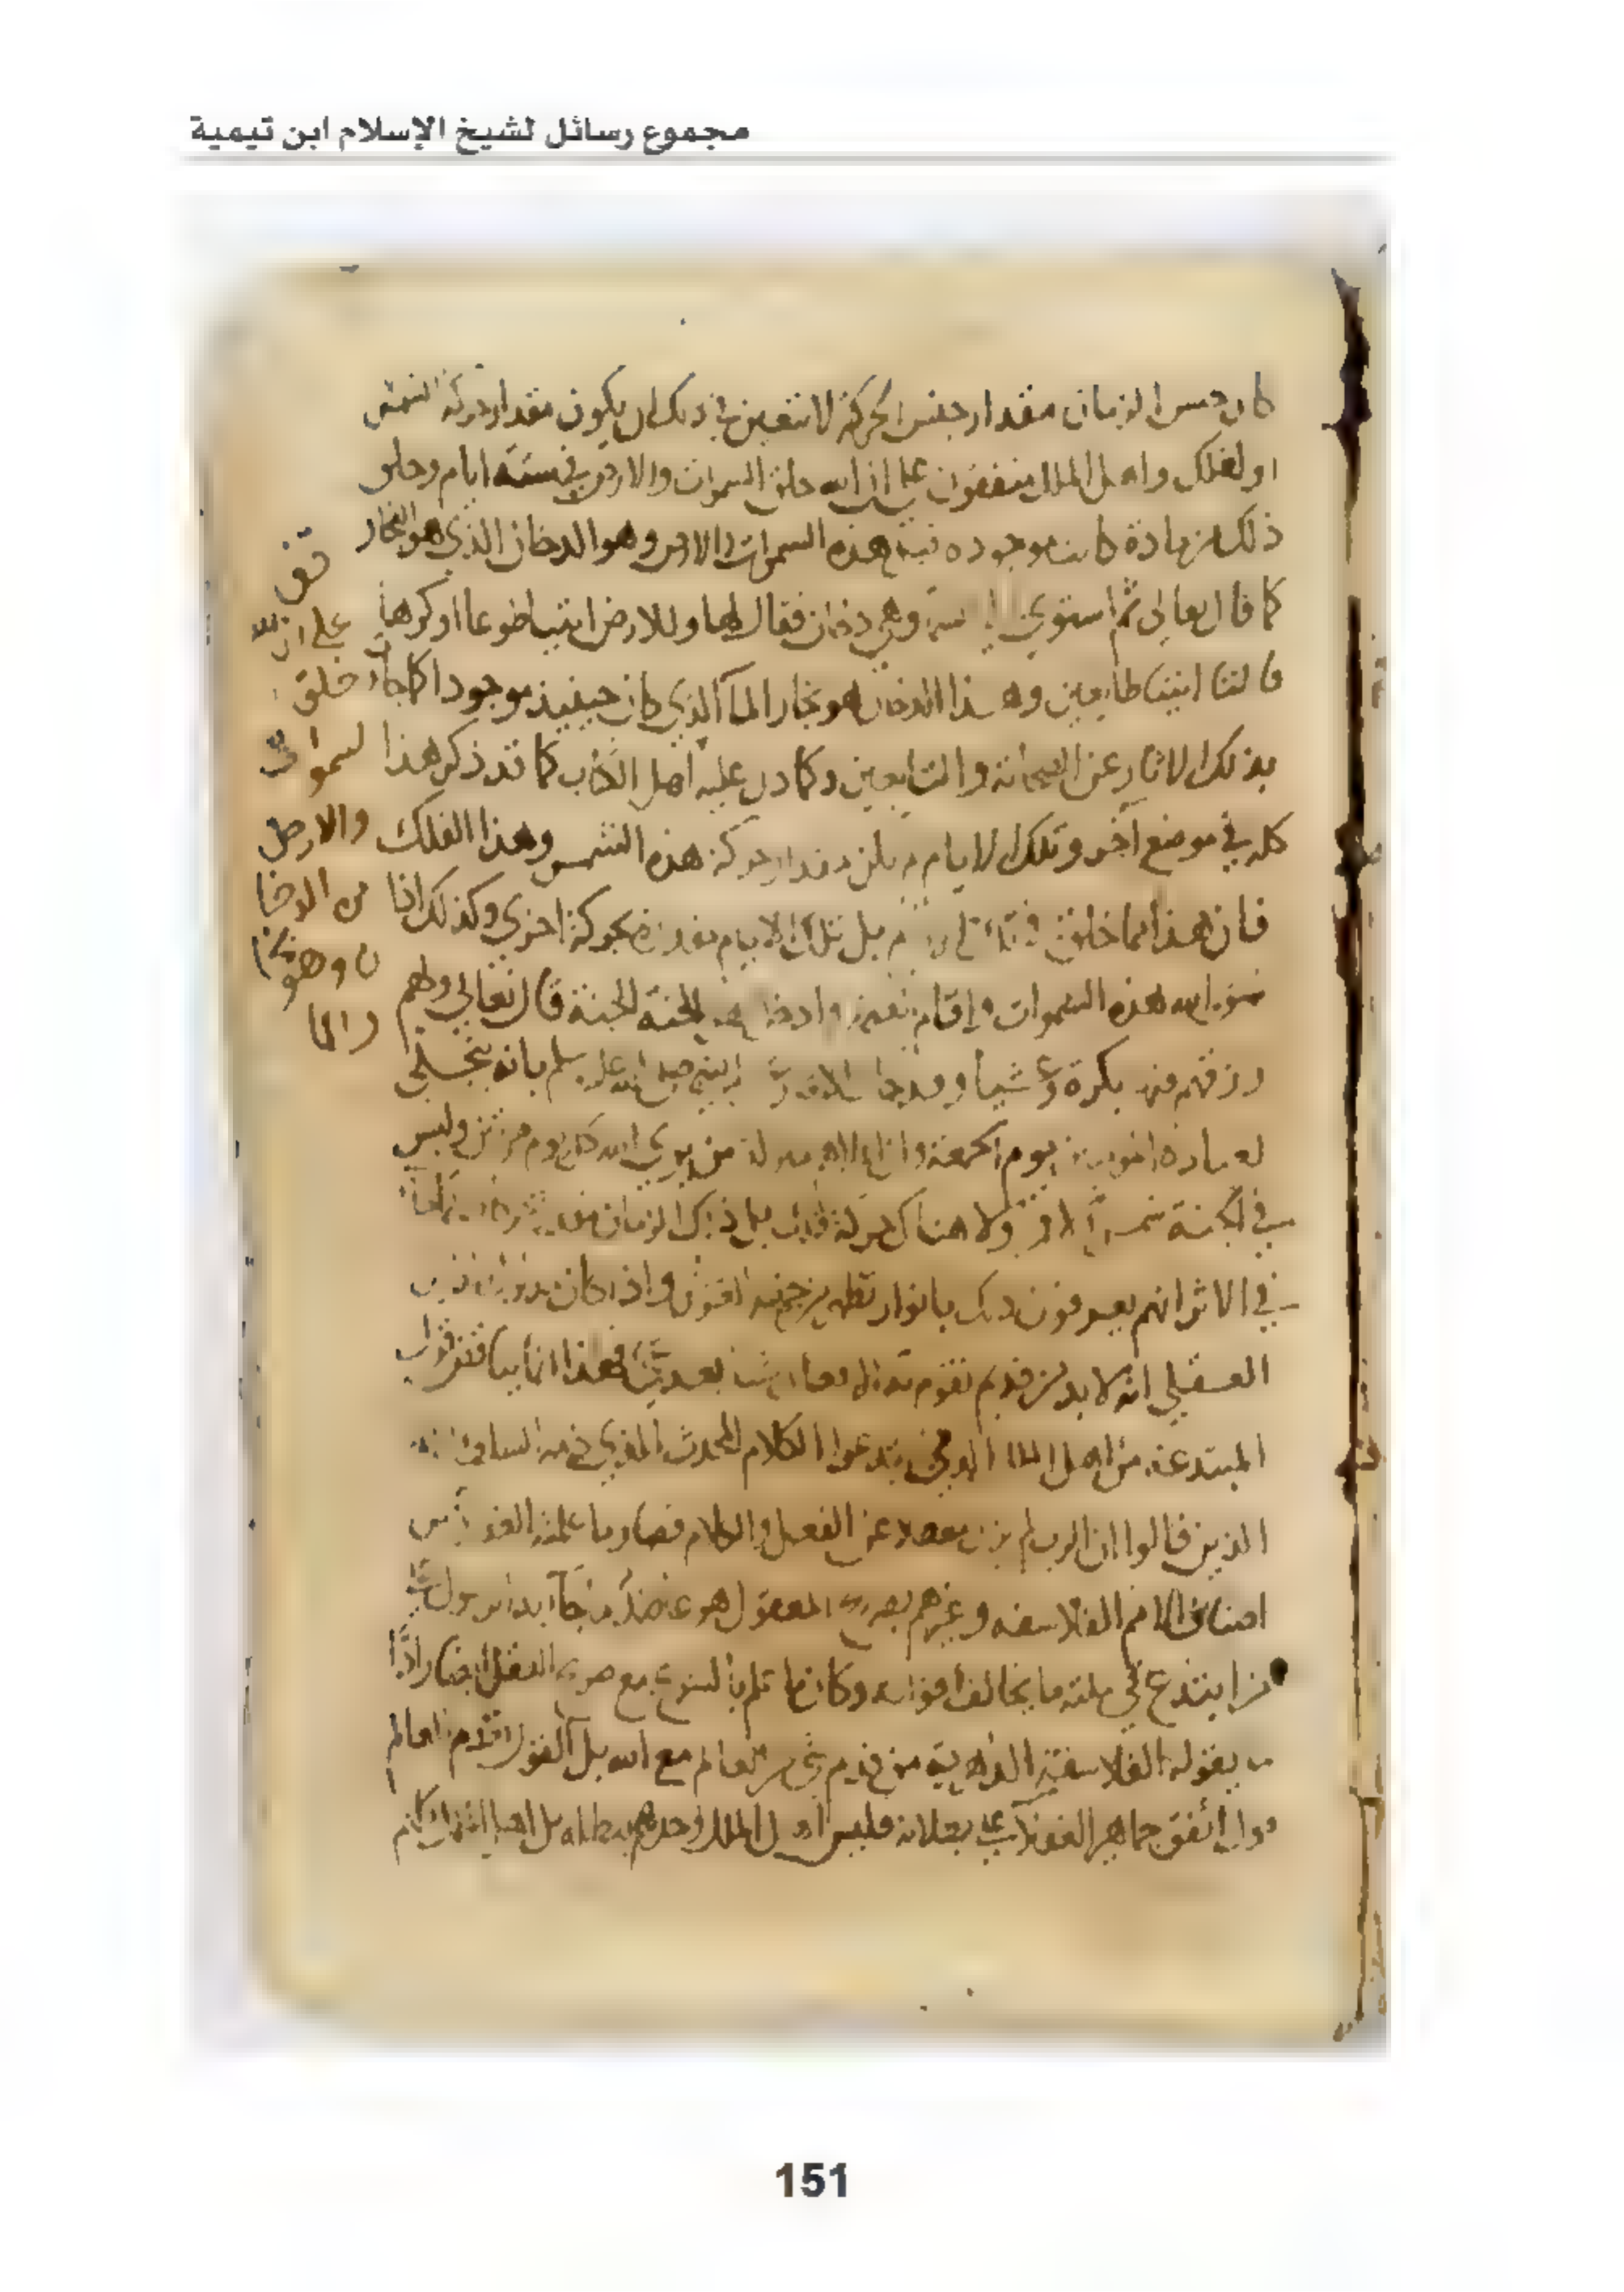 مجموع رسائل لشيخ الإسلام ابن تيمية
كان جنس الزمان مقدار جنس الحركة لا يتعين في ذلك ان يكون مقدار حركة الشمس
او الفلك واهل الملل متفقون على ان الله خلق السموات والارض في ستة ايام وخلق
ذلك من مادة كانت موجودة قبل هذه السموات والارض وهو الدخان الذي هو البخار
كما قال تعالى ثم استوى الى السماء وهي دخان فقال لها وللارض ائتيا طوعا او كرها
قالتا اتينا طايعين وهذا الدخان هو بخار الماء الذي كان حينيذ موجودا كما جاءت
بذلك الاثار عن الصحابة والتابعين وكما دل عليه اهل الكتاب كما قد ذكر هذا
كله في موضع آخر وتلك الايام لم تكن مقدار حركة هذه الشمس وهذا الفلك
فان هذا مما خلق في تلك الايام بل تلك الايام مقدرة بحركة اخرى وكذلك اذا
الله هذه السموات واقام القيمة وادخل اهل الجنة الجنة قال تعالى ولهم
رزقهم فيها بكرة وعشيا وقد جات الاثار عن النبي صلى الله عليه وسلم بانه يتجلى
لعباده المومنين يوم الجمعة وان اعلاهم منزلة من يرى الله كل يوم مرتين وليس
في الجنة شمس ولا قمر ولا هناك حركة فلك بل ذلك الزمان مقدر بحركات كما جاء
في الاثر انهم يعرفون ذلك بانوار تظهر من جهة العرش واذا كان
العقلي انه لا بد من قديم تقوم به الافعال شيئا بعد شيء فهذا انما يناقض قول
المبتدعة من اهل الملل الذين ابتدعوا الكلام المحدث الذي ذمه السلف
الذين قالوا ان الرب لم يزل معطلا عن الفعل والكلام فصار ما علمته العقلاء من
اصناف الامم الفلاسفة وغيرهم بصريح المعقول هو عاضد لما جاء به الرسول
من ابتدع في ملته ما يخالف اقواله وكان ما علم بالشرع مع صريح العقل ايضا رادا
ما يقوله الفلاسفة الدهرية من قدم شيء من العالم مع الله بل القول بقدم العالم
قول اتفق جماهير العقلاء على بطلانه فليس اهل الملل وحدهم تبطله بل اهل الملل كلهم
تفق
على ان الله
خلق
لسموات
والارض
من الدخا
ن وهو بخا
ر الما
151